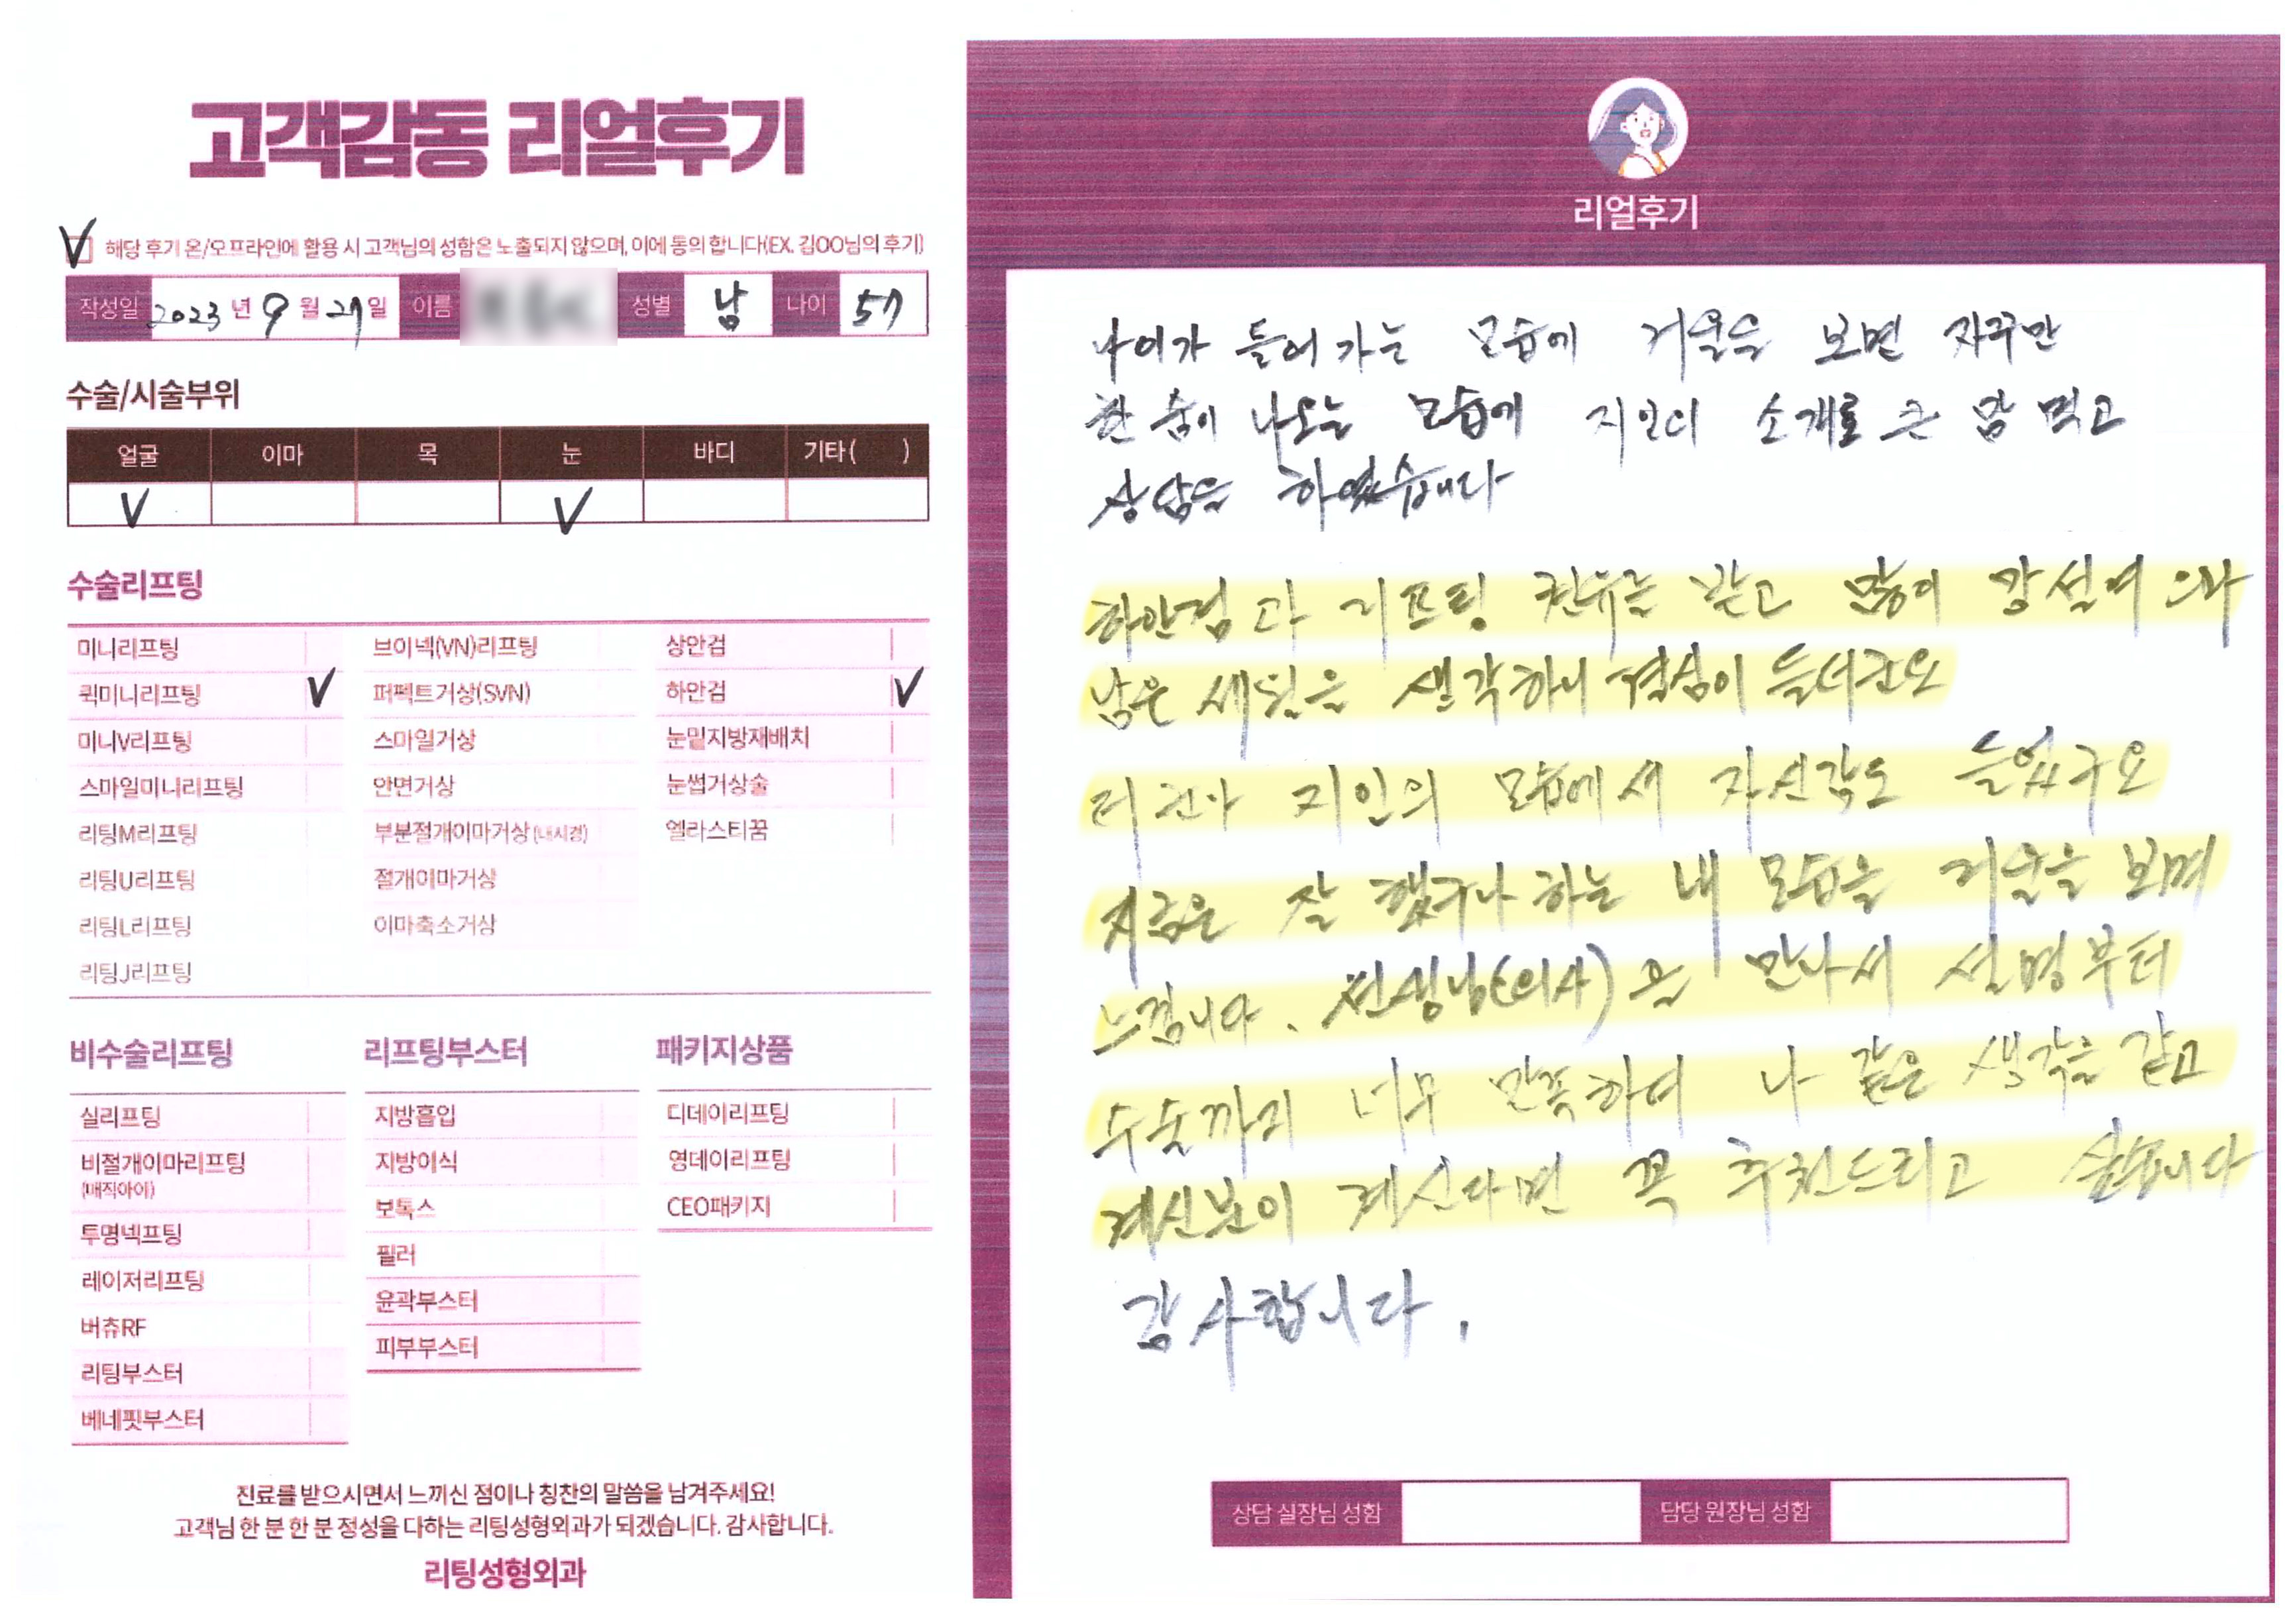 고객감동 리얼후기
해당 후기 온/오프라인에 활용 시 고객님의 성함은 노출되지 않으며, 이에 동의 합니다(EX. 김OO님의 후기)
작성일 2023년 9월 27일 이름 성별 남 나이 57
수술/시술부위
얼굴 이마 목 눈 바디 기타( )
V V
수술리프팅
미니리프팅 브이넥(VN)리프팅 상안검
퀵미니리프팅 V 퍼펙트거상(SVN) 하안검 V
미니V리프팅 스마일거상 눈밑지방재배치
스마일미니리프팅 안면거상 눈썹거상술
리팅M리프팅 부분절개이마거상(내시경) 엘라스티꿈
리팅U리프팅 절개이마거상
리팅L리프팅 이마축소거상
리팅J리프팅
비수술리프팅 리프팅부스터 패키지상품
실리프팅 지방흡입 디데이리프팅
비절개이마리프팅 지방이식 영데이리프팅
(매직아이) 보톡스 CEO패키지
투명넥프팅 필러
레이저리프팅 윤곽부스터
버츄RF 피부부스터
리팅부스터
베네핏부스터
진료를 받으시면서 느끼신 점이나 칭찬의 말씀을 남겨주세요!
고객님 한 분 한 분 정성을 다하는 리팅성형외과가 되겠습니다. 감사합니다.
리팅성형외과
리얼후기
나이가 들어 가는 모습에 거울을 보면 자꾸만
한숨이 나오는 모습에 지인의 소개로 큰 맘 먹고
상담을 하였습니다
하안검과 리프팅 권유를 받고 많이 망설여
남은 세월을 생각하니 결심이 들더군요
더군다나 지인의 모습에서 자신감도 들었구요
지금은 잘 했구나 하는 내 모습을 거울을 보며
느낍니다. 선생님(의사)을 만나서 설명부터
수술까지 너무 만족하며 나 같은 생각을 갖고
계신분이 계신다면 꼭 추천드리고 싶습니다
감사합니다.
상담 실장님 성함 담당 원장님 성함